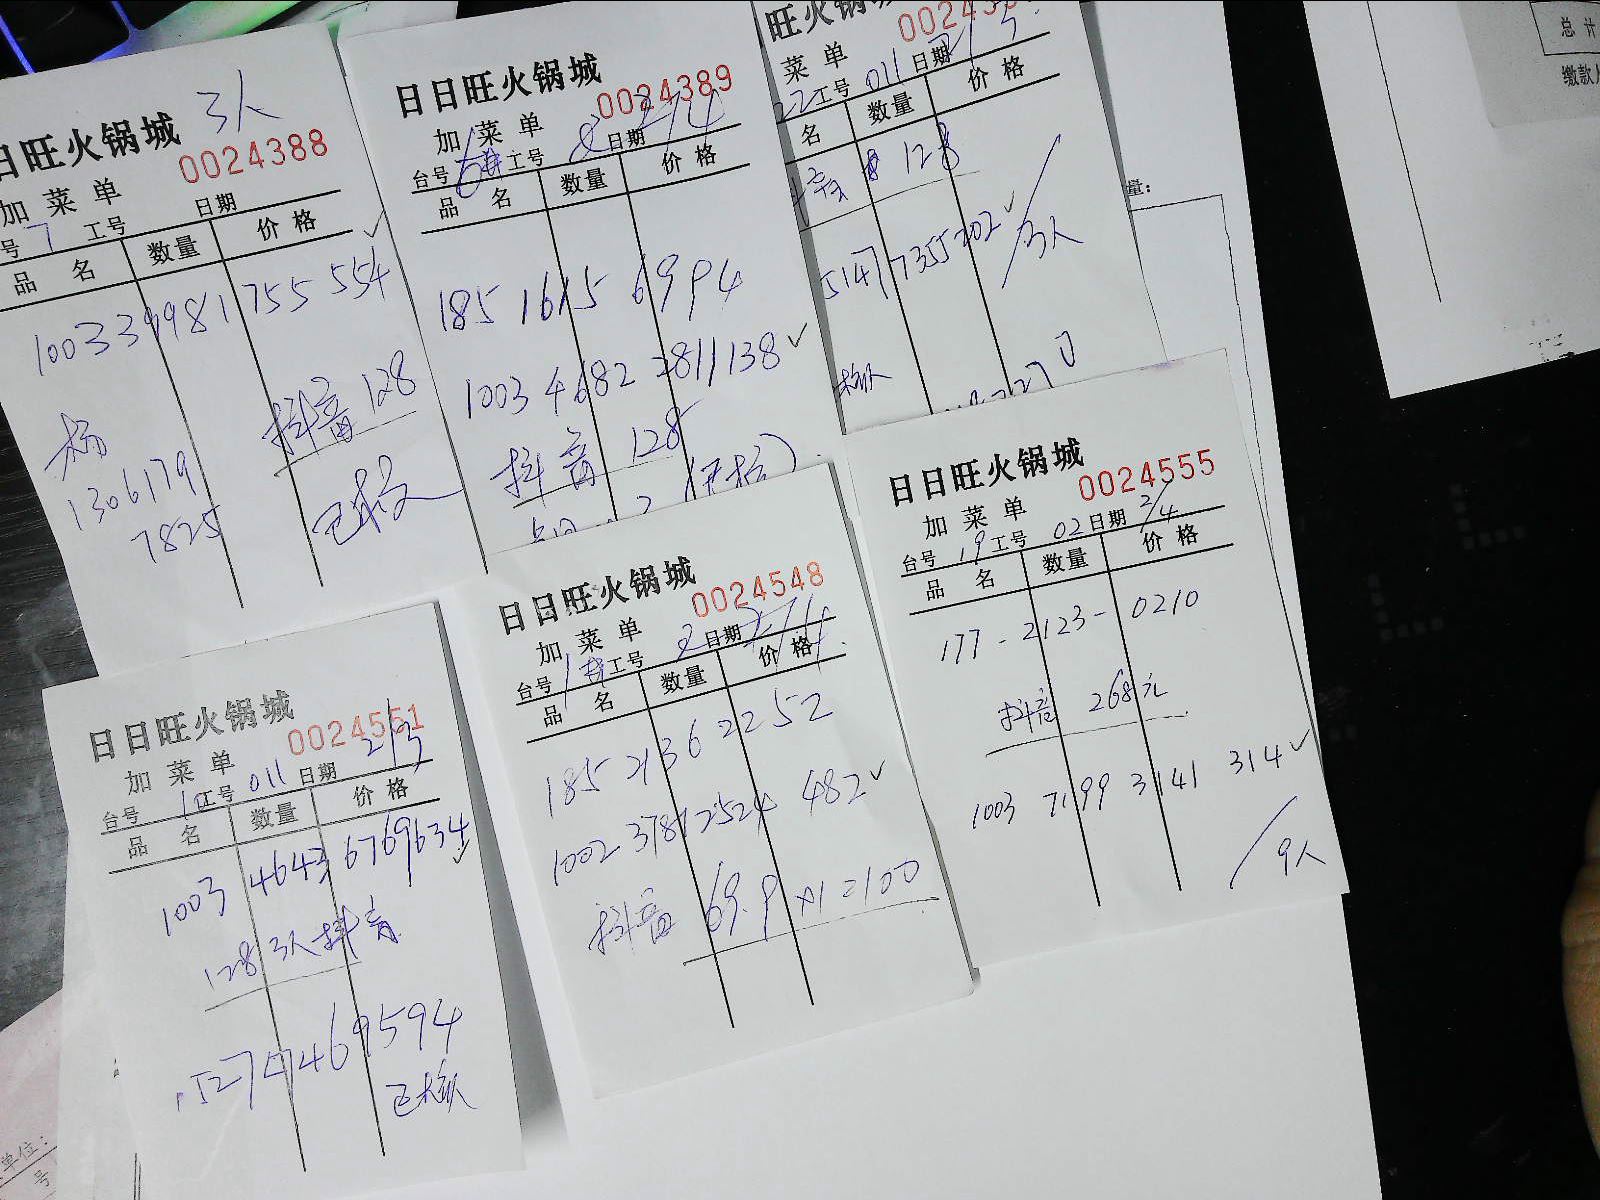 3人
日旺火锅城
0024388
加菜单
日期
号 7 工号
品名 数量 价格
100339981755554
抖音 128
杨
1306179
7825
日日旺火锅城
0024389
加菜单
台号 6# 工号 2 日期 2/4
品名 数量 价格
185 1615 6994
1003 4682 2811138
抖音 128
旺火锅
菜单
22 工号 011 日期 2/3
名 数量 价格
128
5147 7355202
3人
日日旺火锅城
0024555
加菜单
台号 19 工号 02 日期 2/4
品名 数量 价格
177-2123-0210
抖音 268元
1003 7199 3141 314
9人
日日旺火锅城
0024548
加菜单
台号 1# 工号 2 日期 2/4
品名 数量 价格
185 2136 2252
1002 37812524 482
抖音 69.9×1=100
日日旺火锅城
0024551
加菜单
台号 工号 011 日期 2/3
品名 数量 价格
1003 4643 6769634
128 3人抖音
15274469594
已核
总计
缴款人
量:
单位:
号